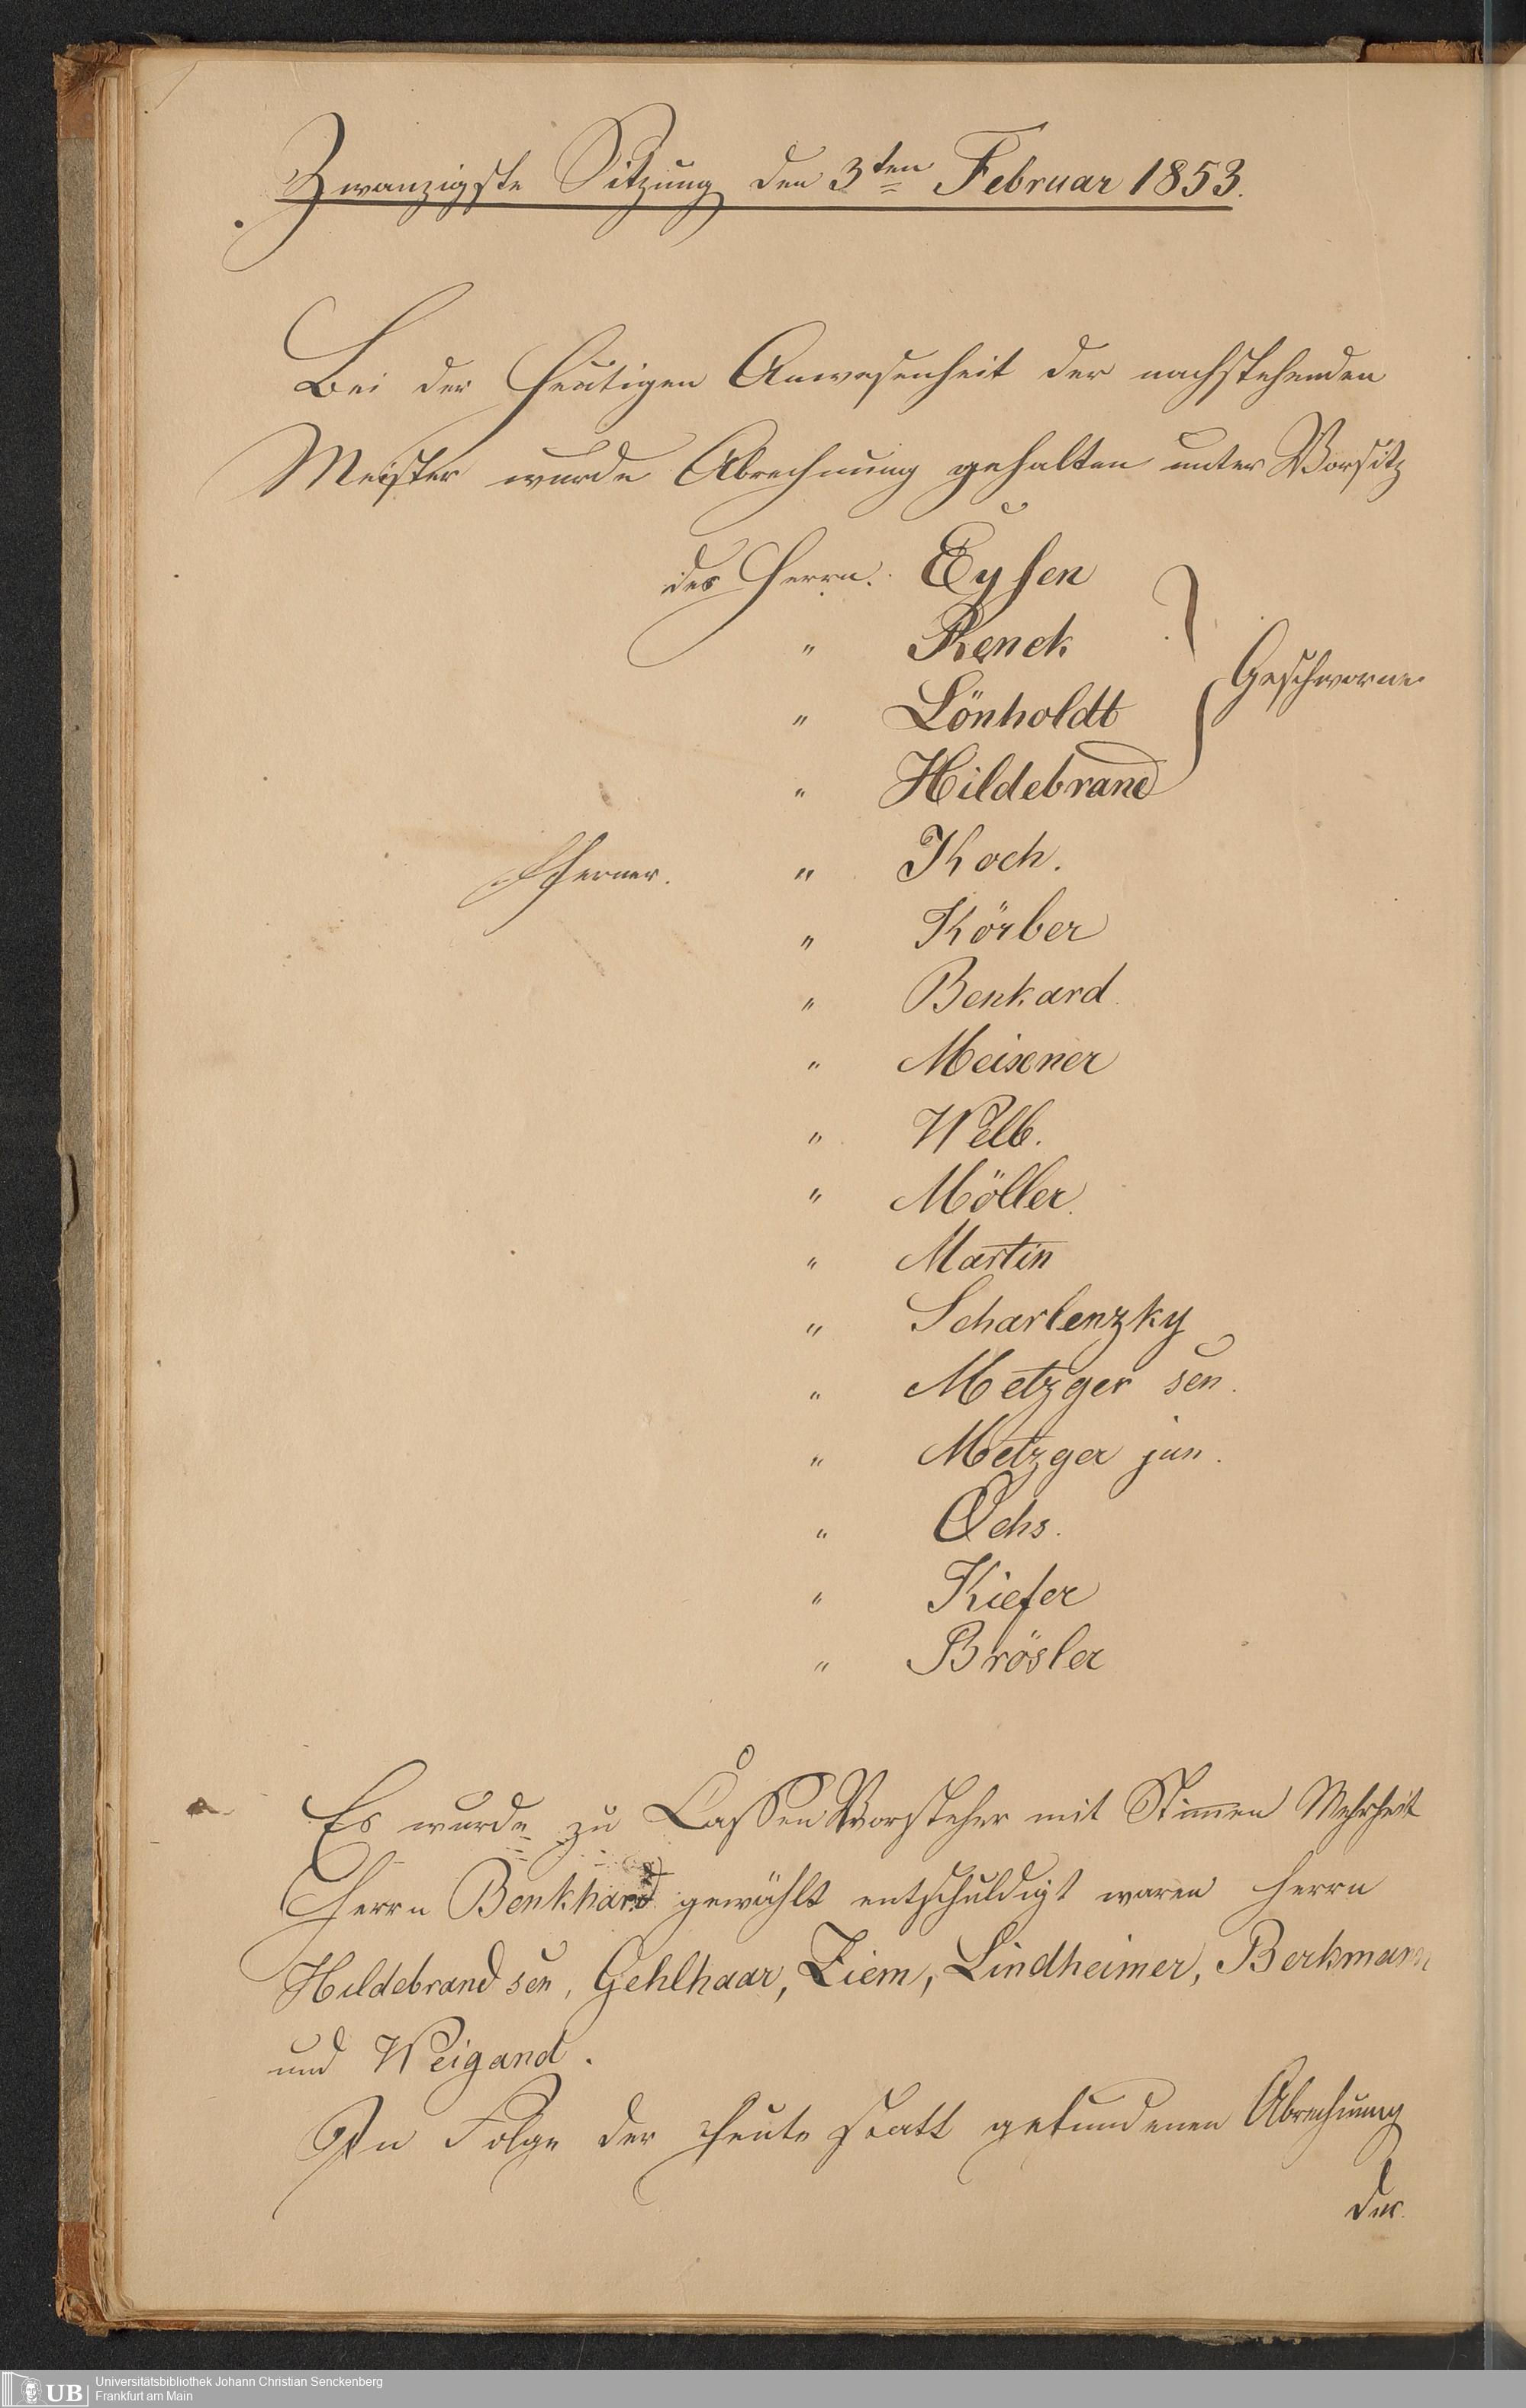 Zwanzigste Sitzung den 3ten Februar 1853.
Bei der heutigen Anwesenheit der nachstehenden
Meister wurde Abrechnung gehalten unter Vorsitz
des Herrn. Eysen
" Renck
Geschworne
" Lönholdt
" Hildebrand
Ferner. " Koch.
" Körber
" Benkard.
" Meixner
" Welb.
" Möller.
" Martin
" Scharlenzky
" Metzger sen.
" Metzger jun.
" Ochs.
" Kiefer
" Brösler
Es wurde zu Cassen Vorsteher mit Stimmen Mehrheit
Herrn Benkhard gewählt entschuldigt waren Herrn
Hildebrand sen, Gehlhaar, Ziem, Lindheimer, Berkmann
und Weigand.
In Folge der heute statt gefundenen Abrechnung
der
UB
Universitätsbibliothek Johann Christian Senckenberg
Frankfurt am Main